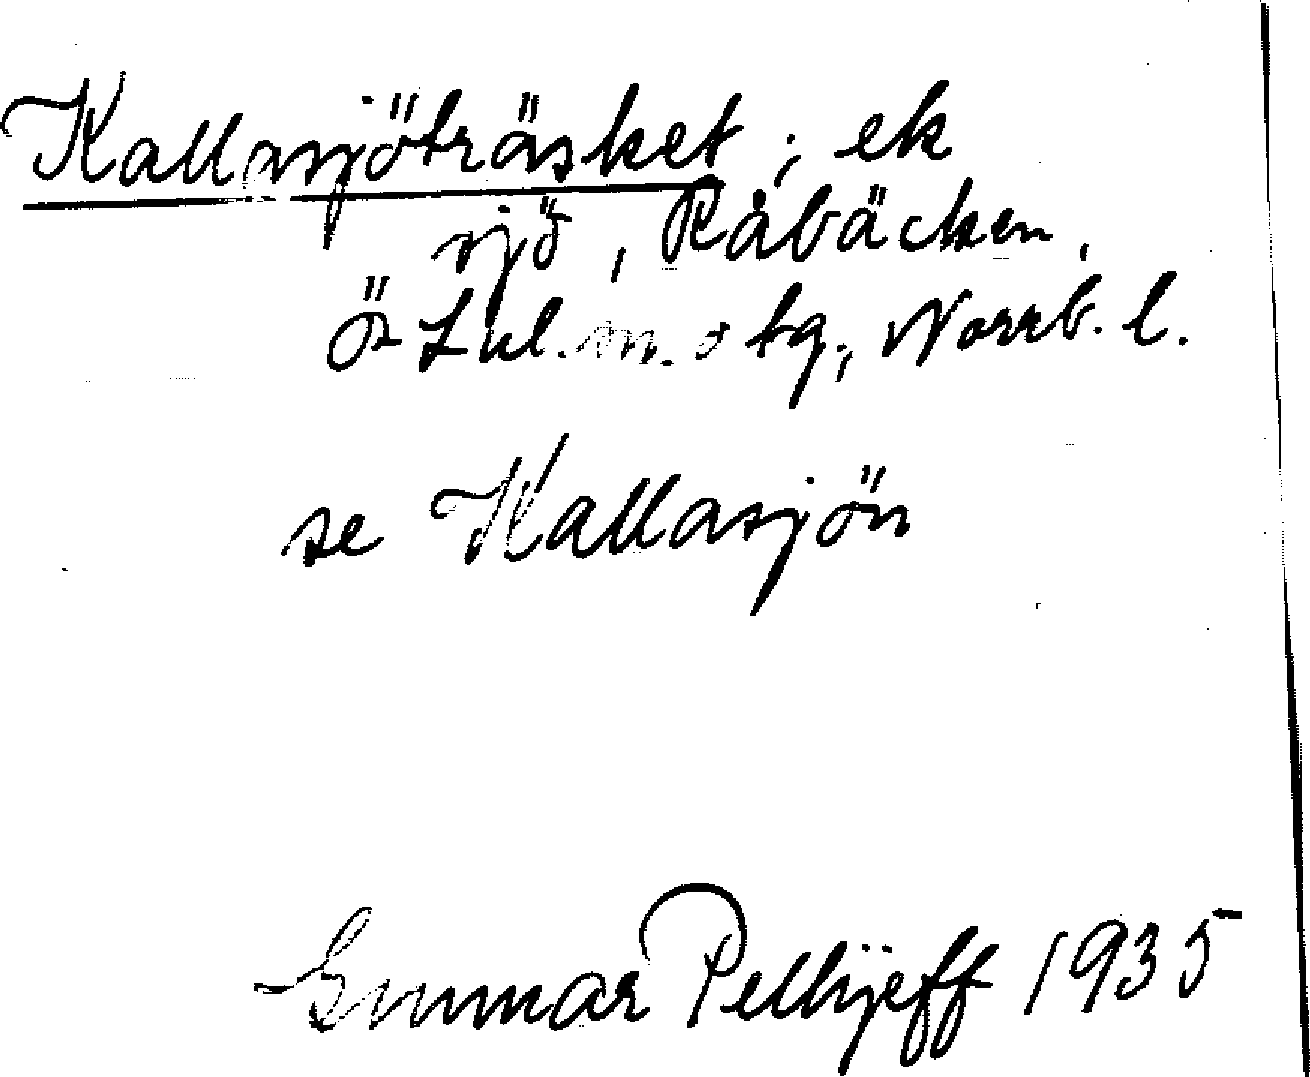 Kallasjöträsket; ek
sjö, Råbäcken,
Ö Lul. sn. o tg., Norrb. l.
se Kallasjön
Gunnar Pellijeff 1935